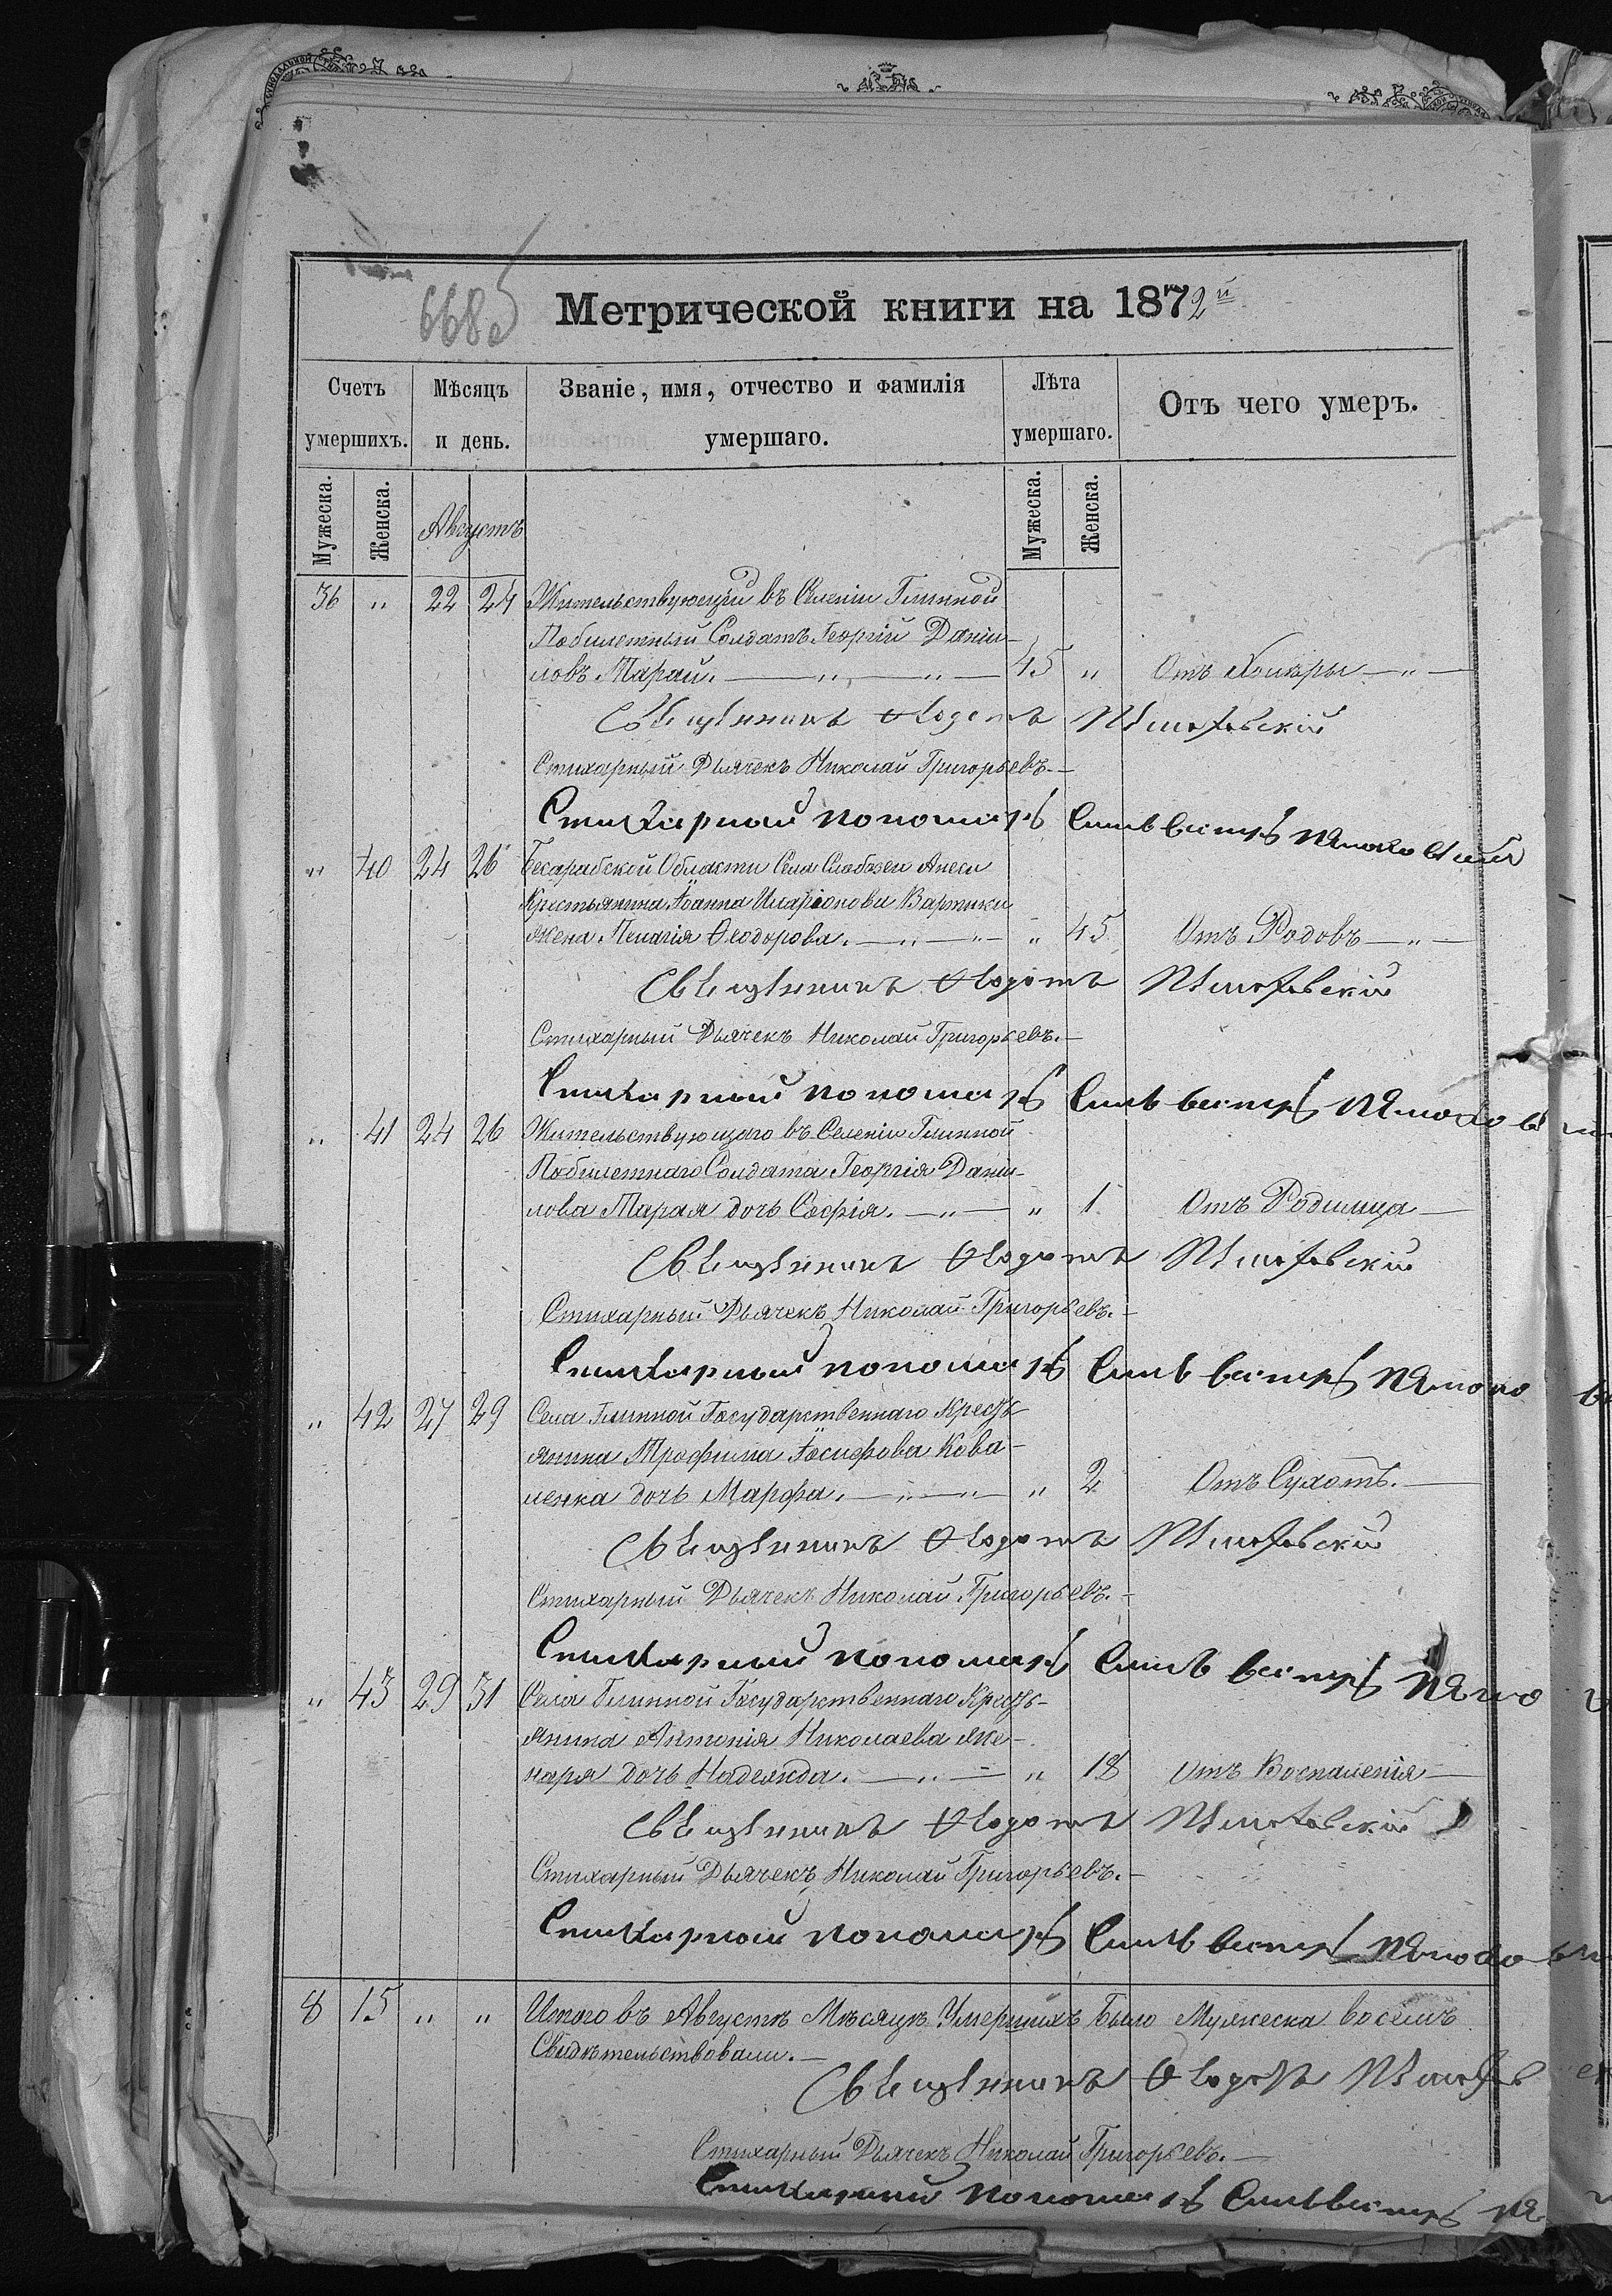 668б
Метрической книги на 1872й
Счетъ умершихъ. Мѣсяцъ и день. Званіе, имя, отчество и фамилія умершаго. Лѣта умершаго. Отъ чего умеръ.
Мужеска. Женска. Августъ Мужеска. Женска.
36 " 22 24 Жительствующій въ Селеніи Глинной
Побилетный Солдатъ Георгій Даніи-
ловъ Марай. 45 " Отъ Холѣры
Священникъ Ѳеодотъ
Стихарный Дьячекъ Николай Григорьевъ.
Стихарный пономарь Сильвестръ
" 40 24 26 Бесарабской Области Села Слободзеи Анеси
Крестьянина Іоанна Иларіонова Вартики
жена Пелагія Ѳеодорова. " 45 Отъ Родовъ
Священникъ Ѳеодотъ
Стихарный Дьячекъ Николай Григорьевъ.
Стихарный пономарь Сильвестръ
" 41 24 26 Жительствующаго въ Селеніи Глинной
Побилетнаго Солдата Георгія Даніи-
лова Марая дочь Софія. " 1 Отъ Родимца
Священникъ Ѳеодотъ
Стихарный Дьячекъ Николай Григорьевъ.
Стихарный пономарь Сильвестръ
" 42 27 29 Села Глинной Государственнаго Кресть-
янина Трофима Іосифова Кова-
ленка дочь Марфа. " 2 Отъ Сухотъ.
Священникъ Ѳеодотъ
Стихарный Дьячекъ Николай Григорьевъ.
Стихарный пономарь Сильвестръ
" 43 29 31 Села Глинной Государственнаго Кресть-
янина Антонія Николаева Же-
наря дочь Надежда. " 18 Отъ Воспаленія
Священникъ Ѳеодотъ
Стихарный Дьячекъ Николай Григорьевъ.
Стихарный пономарь Сильвестръ
8 15 " " Итого въ Августѣ Мѣсяцѣ Умершихъ Было Мужеска восемъ
Свидѣтельствовали.
Священникъ Ѳеодотъ
Стихарный Дьячекъ Николай Григорьевъ.
Стихарный пономарь Сильвестръ